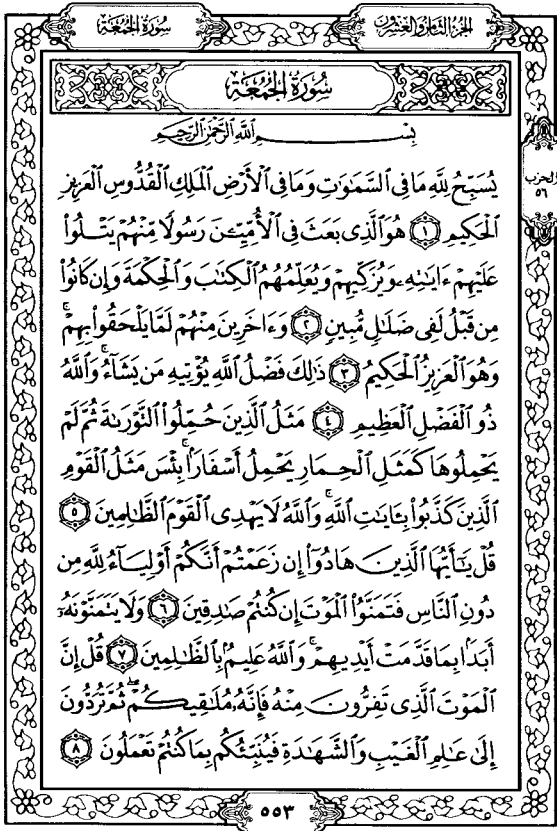 سُورَةُ الجُمُعَةِ
الجُزْءُ الثَّامِنُ وَالعِشْرُونَ
سُورَةُ الجُمُعَةِ
بِسْمِ اللَّهِ الرَّحْمَٰنِ الرَّحِيمِ
الحزب
٥٦
يُسَبِّحُ لِلَّهِ مَا فِي السَّمَٰوَٰتِ وَمَا فِي الْأَرْضِ الْمَلِكِ الْقُدُّوسِ الْعَزِيزِ
الْحَكِيمِ ١ هُوَ الَّذِي بَعَثَ فِي الْأُمِّيِّـۧنَ رَسُولًا مِّنْهُمْ يَتْلُوا۟
عَلَيْهِمْ ءَايَٰتِهِۦ وَيُزَكِّيهِمْ وَيُعَلِّمُهُمُ الْكِتَٰبَ وَالْحِكْمَةَ وَإِن كَانُوا۟
مِن قَبْلُ لَفِي ضَلَٰلٍ مُّبِينٍ ٢ وَءَاخَرِينَ مِنْهُمْ لَمَّا يَلْحَقُوا۟ بِهِمْ ۚ
وَهُوَ الْعَزِيزُ الْحَكِيمُ ٣ ذَٰلِكَ فَضْلُ اللَّهِ يُؤْتِيهِ مَن يَشَآءُ ۚ وَاللَّهُ
ذُو الْفَضْلِ الْعَظِيمِ ٤ مَثَلُ الَّذِينَ حُمِّلُوا۟ التَّوْرَىٰةَ ثُمَّ لَمْ
يَحْمِلُوهَا كَمَثَلِ الْحِمَارِ يَحْمِلُ أَسْفَارًۢا ۚ بِئْسَ مَثَلُ الْقَوْمِ
الَّذِينَ كَذَّبُوا۟ بِـَٔايَٰتِ اللَّهِ ۚ وَاللَّهُ لَا يَهْدِي الْقَوْمَ الظَّٰلِمِينَ ٥
قُلْ يَٰٓأَيُّهَا الَّذِينَ هَادُوٓا۟ إِن زَعَمْتُمْ أَنَّكُمْ أَوْلِيَآءُ لِلَّهِ مِن
دُونِ النَّاسِ فَتَمَنَّوُا۟ الْمَوْتَ إِن كُنتُمْ صَٰدِقِينَ ٦ وَلَا يَتَمَنَّوْنَهُۥٓ
أَبَدًۢا بِمَا قَدَّمَتْ أَيْدِيهِمْ ۚ وَاللَّهُ عَلِيمٌۢ بِالظَّٰلِمِينَ ٧ قُلْ إِنَّ
الْمَوْتَ الَّذِي تَفِرُّونَ مِنْهُ فَإِنَّهُۥ مُلَٰقِيكُمْ ۖ ثُمَّ تُرَدُّونَ
إِلَىٰ عَٰلِمِ الْغَيْبِ وَالشَّهَٰدَةِ فَيُنَبِّئُكُم بِمَا كُنتُمْ تَعْمَلُونَ ٨
٥٥٣